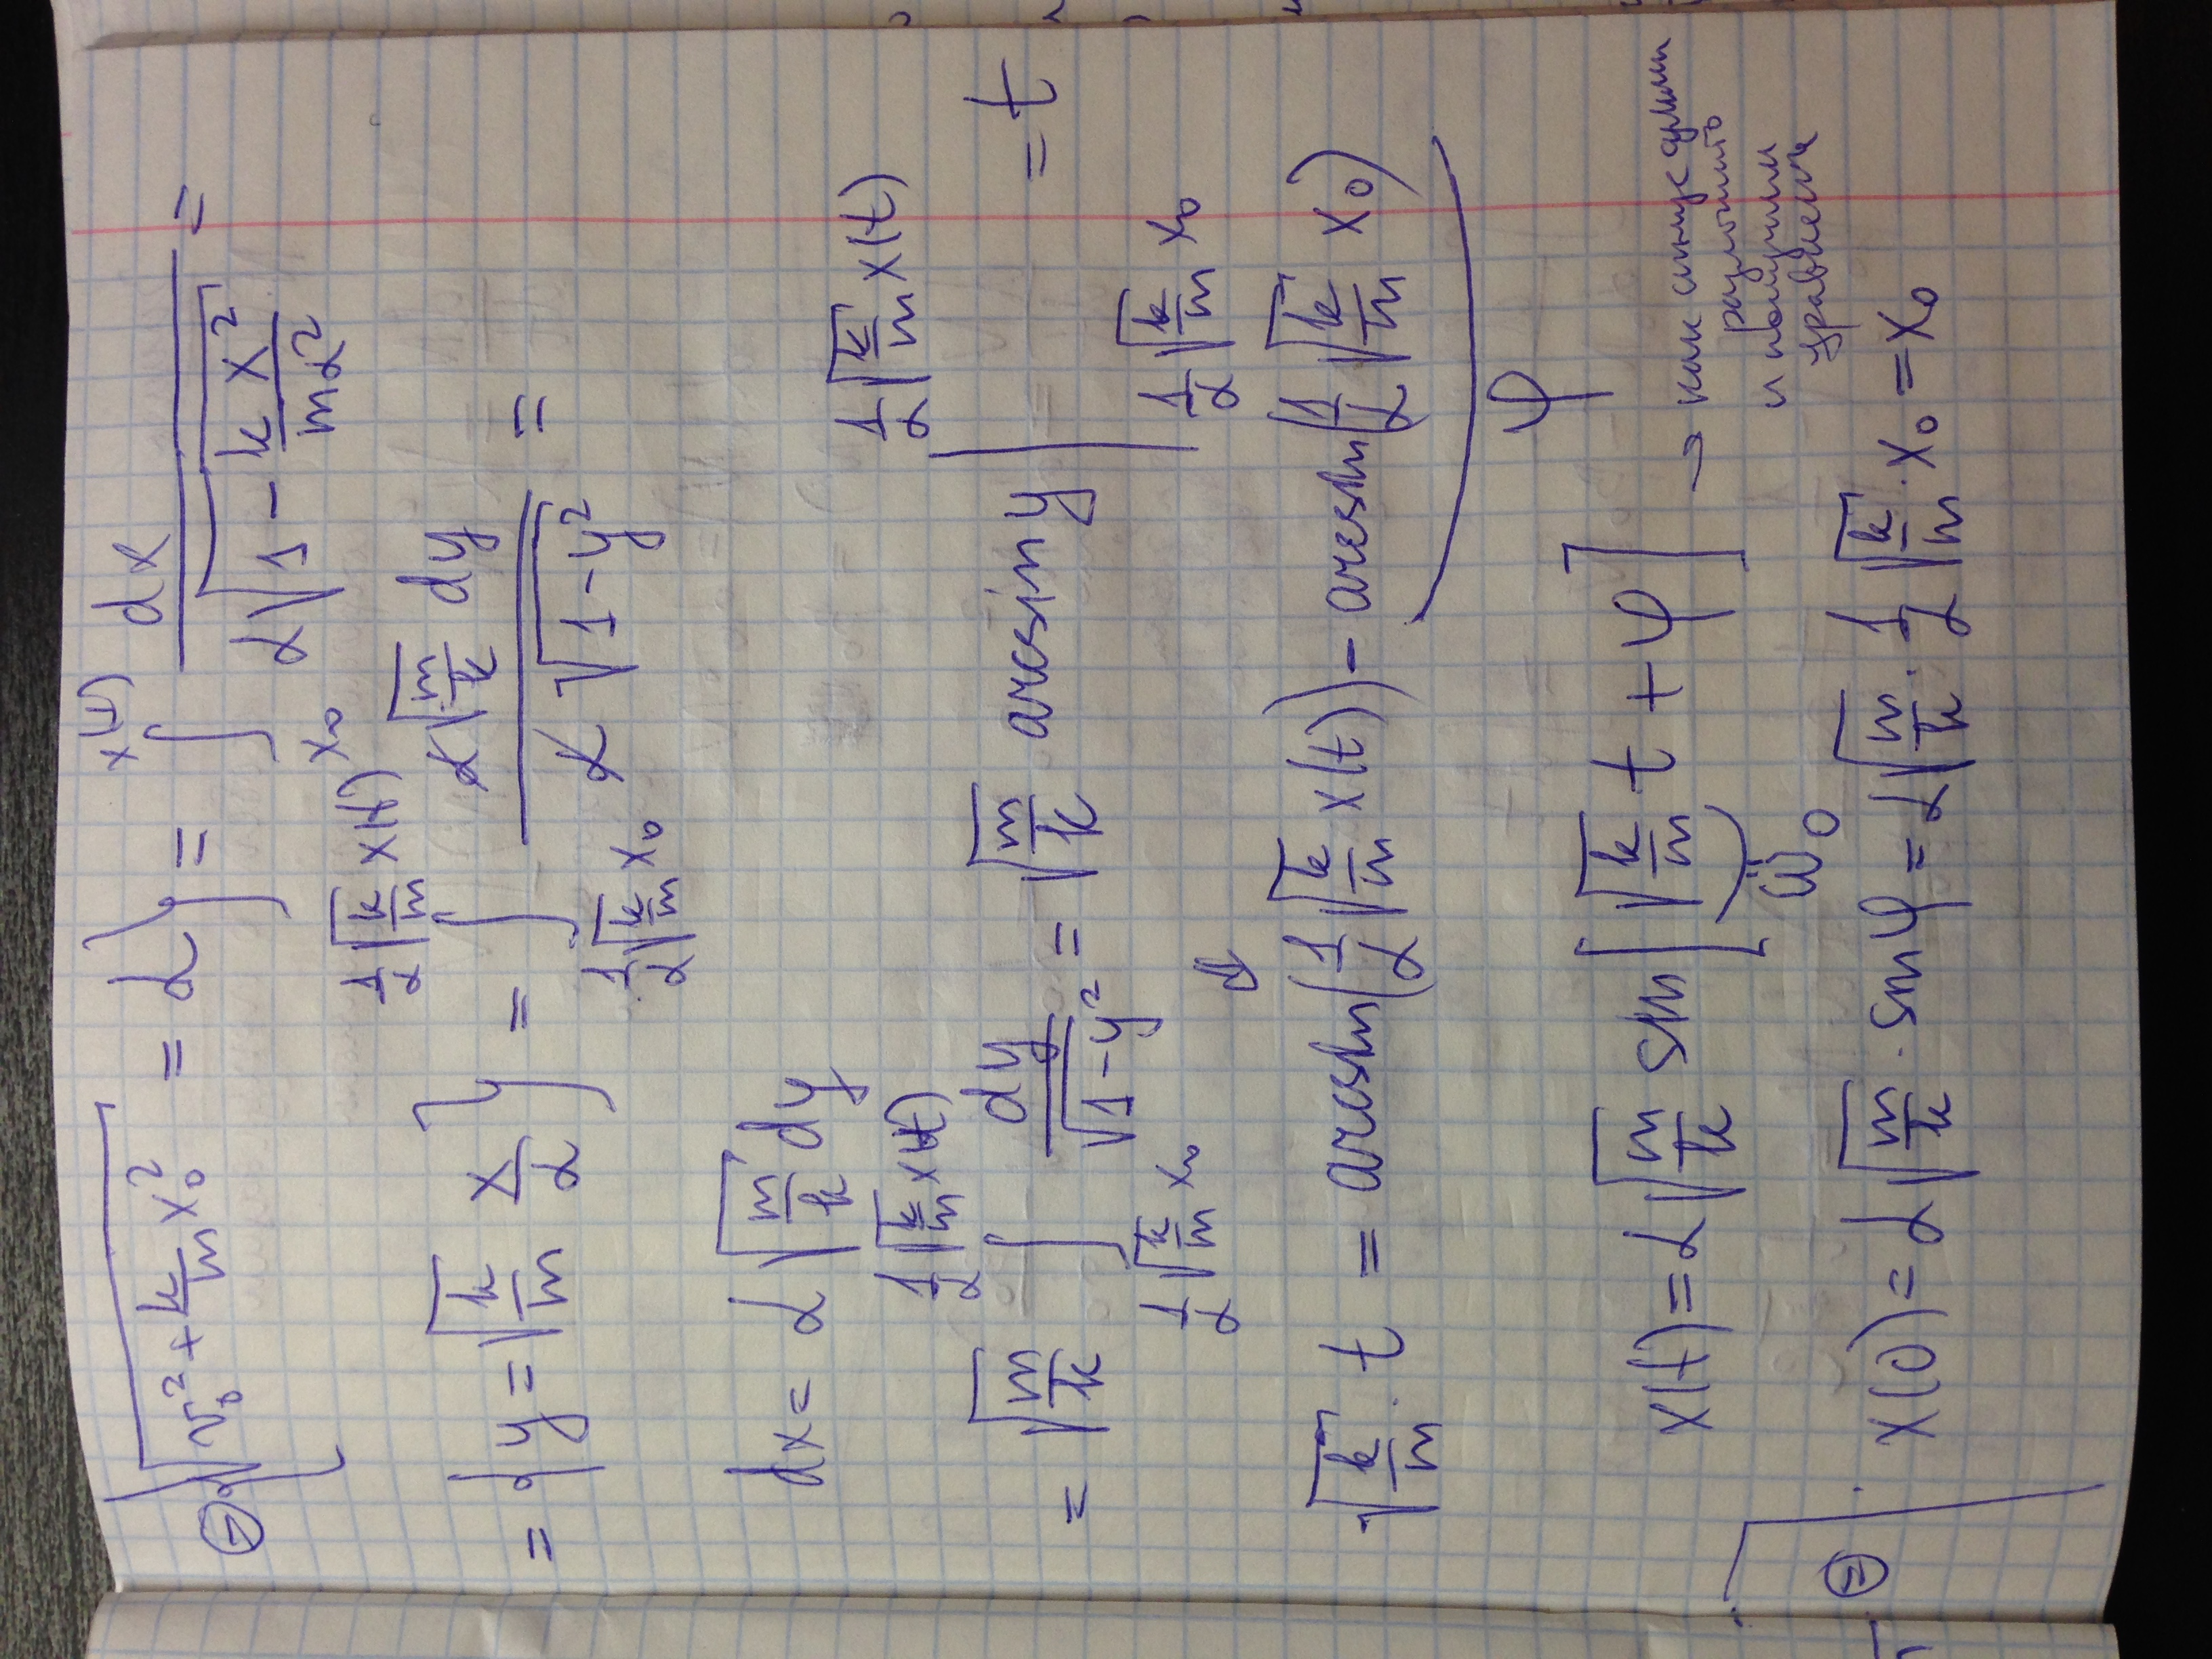 ⊜ { √(v₀² + k/m x₀²) = α } = ∫_{x₀}^{x(t)} dx / (α √(1 - k x² / (m α²))) =
= { y = √(k/m) x/α } = ∫_{1/α √(k/m) x₀}^{1/α √(k/m) x(t)} α √(m/k) dy / (α √(1-y²)) =
dx = α √(m/k) dy
= √(m/k) ∫_{1/α √(k/m) x₀}^{1/α √(k/m) x(t)} dy / √(1-y²) = √(m/k) arcsin y |_{1/α √(k/m) x₀}^{1/α √(k/m) x(t)} = t
⇓
√(k/m) · t = arcsin(1/α √(k/m) x(t)) - arcsin(1/α √(k/m) x₀)
φ
x(t) = α √(m/k) sin [ √(k/m) t + φ ] → как синус суммы
разложить
и получим
уравнение
ω₀
x(0) = α √(m/k) · sin φ = α √(m/k) · 1/α √(k/m) · x₀ = x₀
⊜